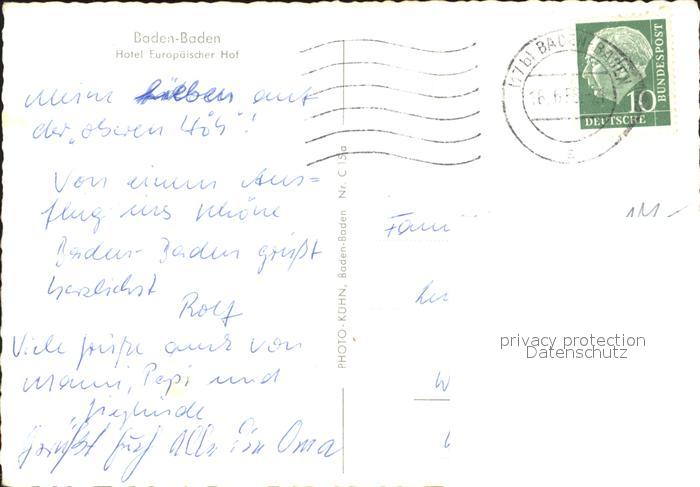 Baden-Baden
Hotel Europäischer Hof
Meine lieben auf
der „oberen Höh“!
Von einem Aus=
flug ins schöne
Baden-Baden grüßt
herzlichst
Rolf
Viele Grüße auch von
Mami, Papi und
Sieglinde
Grüßt Euch Alle Oma
PHOTO-KÜHN, Baden-Baden Nr. C 15a
(17b) BADEN-BADEN
10
DEUTSCHE
BUNDESPOST
Fam
privacy protection
Datenschutz